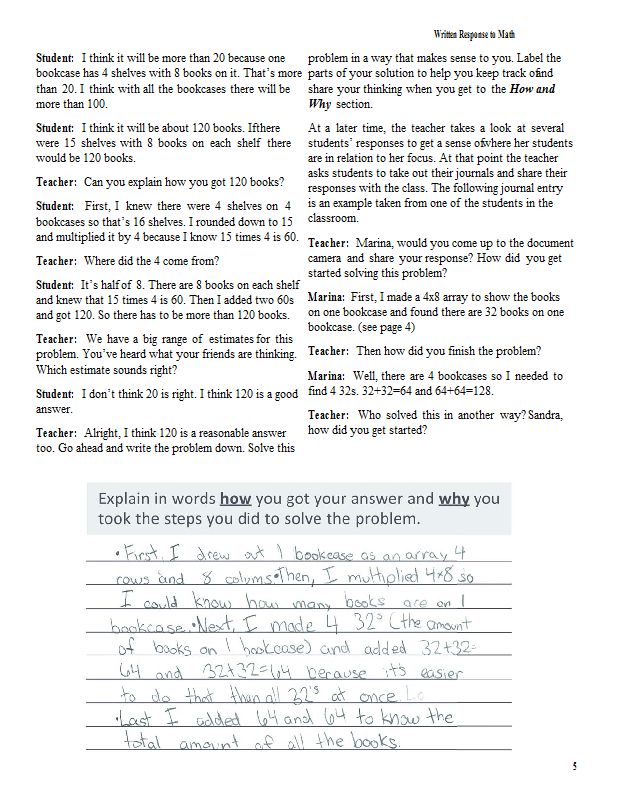 Written Response to Math
Student: I think it will be more than 20 because one
bookcase has 4 shelves with 8 books on it. That's more
than 20. I think with all the bookcases there will be
more than 100.
Student: I think it will be about 120 books. Ifthere
were 15 shelves with 8 books on each shelf there
would be 120 books.
Teacher: Can you explain how you got 120 books?
Student: First, I knew there were 4 shelves on 4
bookcases so that's 16 shelves. I rounded down to 15
and multiplied it by 4 because I know 15 times 4 is 60.
Teacher: Where did the 4 come from?
Student: It's half of 8. There are 8 books on each shelf
and knew that 15 times 4 is 60. Then I added two 60s
and got 120. So there has to be more than 120 books.
Teacher: We have a big range of estimates for this
problem. You've heard what your friends are thinking.
Which estimate sounds right?
Student: I don't think 20 is right. I think 120 is a good
answer.
Teacher: Alright, I think 120 is a reasonable answer
too. Go ahead and write the problem down. Solve this
problem in a way that makes sense to you. Label the
parts of your solution to help you keep track ofand
share your thinking when you get to the How and
Why section.
At a later time, the teacher takes a look at several
students' responses to get a sense ofwhere her students
are in relation to her focus. At that point the teacher
asks students to take out their journals and share their
responses with the class. The following journal entry
is an example taken from one of the students in the
classroom.
Teacher: Marina, would you come up to the document
camera and share your response? How did you get
started solving this problem?
Marina: First, I made a 4x8 array to show the books
on one bookcase and found there are 32 books on one
bookcase. (see page 4)
Teacher: Then how did you finish the problem?
Marina: Well, there are 4 bookcases so I needed to
find 4 32s. 32+32=64 and 64+64=128.
Teacher: Who solved this in another way? Sandra,
how did you get started?
Explain in words how you got your answer and why you
took the steps you did to solve the problem.
•First, I drew out 1 bookcase as an array 4
rows and 8 colums•Then, I multiplied 4×8 so
I could know how many books are on 1
bookcase.•Next, I made 4 32's (the amount
of books on 1 bookcase) and added 32+32=
64 and 32+32=64 because it's easier
to do that than all 32's at once
•Last I added 64 and 64 to know the
total amount of all the books.
5